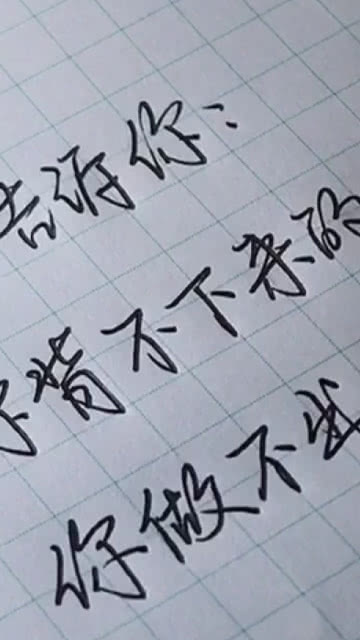 告诉你：
背不下来的
你做不出